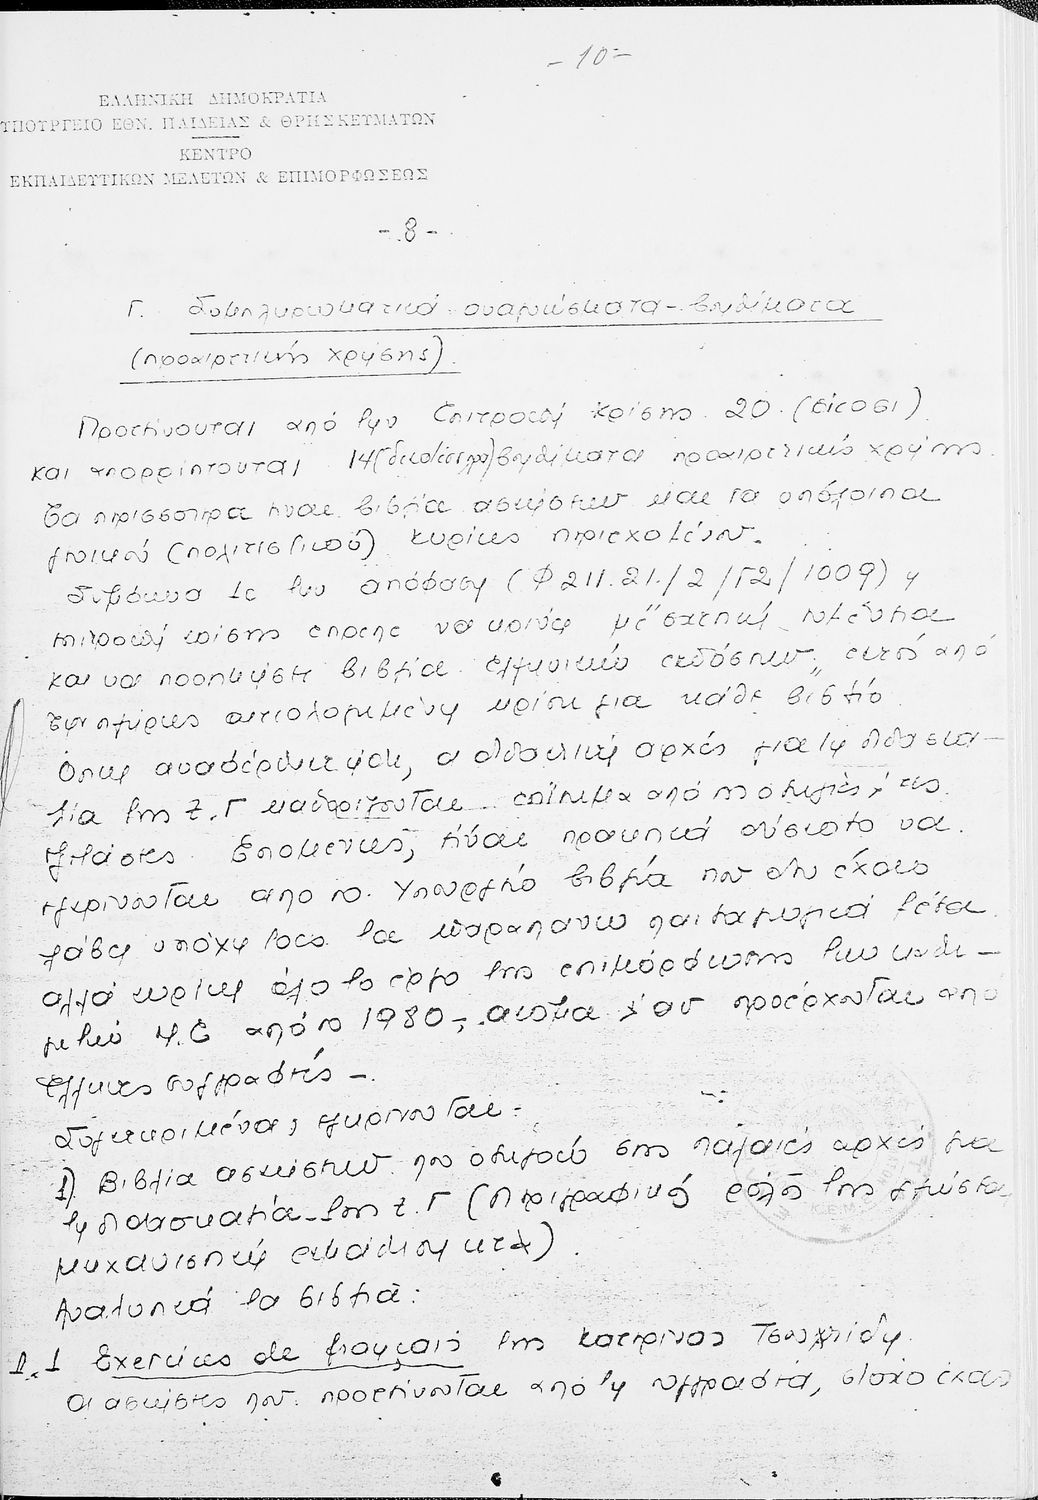 - 10 -
ΕΛΛΗΝΙΚΗ ΔΗΜΟΚΡΑΤΙΑ
ΥΠΟΥΡΓΕΙΟ ΕΘΝ. ΠΑΙΔΕΙΑΣ & ΘΡΗΣΚΕΥΜΑΤΩΝ
ΚΕΝΤΡΟ
ΕΚΠΑΙΔΕΥΤΙΚΩΝ ΜΕΛΕΤΩΝ & ΕΠΙΜΟΡΦΩΣΕΩΣ
- 8 -
Γ. Συμπληρωματικά αναγνώσματα - βοηθήματα
(προαιρετικής χρήσης).
Προτείνονται από την Επιτροπή Κρίσης 20 (είκοσι)
και απορρίπτονται 14 (δεκατέσσερα) βοηθήματα προαιρετικής χρήσης.
Τα περισσότερα είναι βιβλία ασκήσεων και τα υπόλοιπα
γενικού (πολιτιστικού) κυρίως περιεχομένου.
Σύμφωνα με την απόφαση (Φ 211.21/2/Γ2/1009) η
επιτροπή κρίσης έπρεπε να κρίνει με "σχετική
και να προτιμήσει βιβλία ελληνικών εκδόσεων", εκτός από
αιτιολογημένη κρίση για κάθε βιβλίο.
Όπως αναφέρθηκε ήδη, οι διδακτικές αρχές για τη διδασκα-
λία της Ξ.Γ καθορίζονται επίσημα από τις οδηγίες, τις
εξετάσεις. Επομένως, είναι πρακτικά να
εγκρίνονται από το Υπουργείο βιβλία που δεν έχουν
λάβει υπόψη τους τα παραπάνω παιδαγωγικά μέσα
αλλά κυρίως όλο το έργο της επιμόρφωσης των καθη-
γητών Μ.Ε από το 1980 -, ακόμα κι αν προέρχονται από
Έλληνες συγγραφείς -.
Συγκεκριμένα, εγκρίνονται:
1) Βιβλία ασκήσεων που οδηγούν στις παλαιές αρχές για
τη διδασκαλία της Ξ.Γ (περιγραφικός ρόλος της γλώσσας,
μηχανιστική εκμάθηση κτλ).
Αναλυτικά τα βιβλία:
1.1 Exercices de français της Κατερίνας
Οι ασκήσεις που προτείνονται από τη συγγραφέα, στόχο έχουν